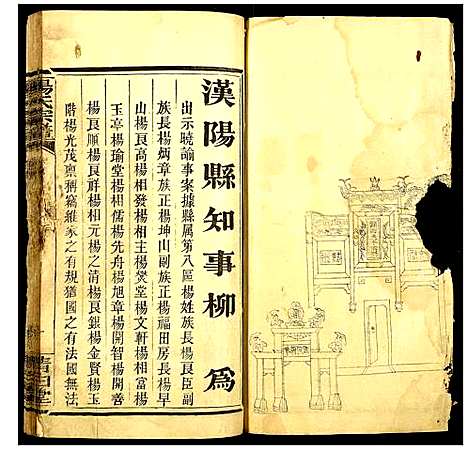 漢陽縣知事柳 爲
出示曉諭事案據縣属第八區楊姓族長楊良臣副
族長楊炳章族正楊坤山副族正楊福田房長楊早
山楊良高楊相發楊相主楊焱堂楊文軒楊相富楊
玉亭楊瑜堂楊相儒楊先舟楊旭章楊開智楊開善
楊良順楊良祥楊相元楊之清楊良銀楊金賢楊玉
階楊光茂禀稱竊維家之有規猶國之有法國無法
楊氏宗譜
清白堂